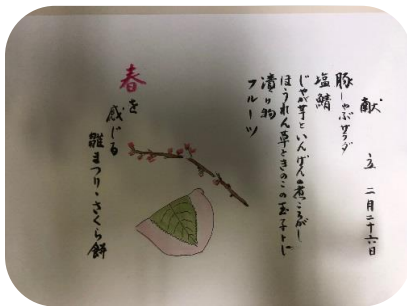 献立 二月二十六日
豚しゃぶサラダ
塩鯖
じゃが芋といんげんの煮ころがし
ほうれん草ときのこの玉子とじ
漬け物
フルーツ
春を
感じる
雛まつり・さくら餅